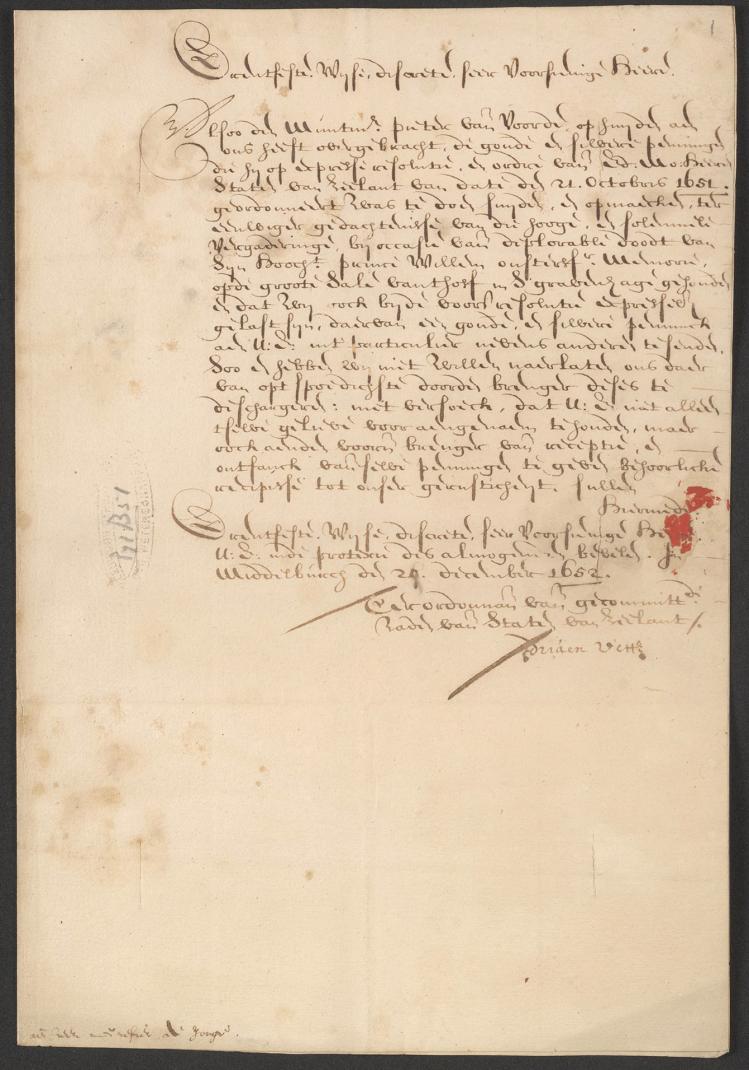 1
Erentfeste, Wyse, discrete, seer Voorsienige Heere,
Alsoo den Muntmr. Pieter van Voorde, op huyden aen
ons heeft overgebracht, de goude en silvere penningen
die hy op expresse resolutie, en ordre van Ed: Mo: Heeren
Staten van Zeelant van date den 21. Octobris 1651.
geordonneert was te doen snyden, en opmaecken, ter
eeuwiger gedachtenisse van die hooge, en solemnele
Vergaderinge, by occasie van deplorable doodt van
Syn Hoocht. prince Willem onsterf. Memorie,
opde groote Sale vanthoff in S'gravenhage gehouden
en dat wy oock byde voors. resolutie expresse
gelast syn, daervan een goude, en silvere penninck
aen U: E: int particulier nevens anderen te senden,
Soo en hebben wy niet willen naerlaten ons daer
van opt spoedichste doorden brenger deses te
deschargeren: met versoeck, dat U: E: niet alleen
tselve gelieve voor aengenaem te houden, maer
oock aenden voorn. brenger van receptie, en
ontfanck van selve penningen te geven behoorlicke
recepisse tot onser gerusticheyt. Sullen
Hiermede
Erentfeste, Wyse, discrete, seer Voorsienige
U: E: inde protexie des almogenden bevelen. In
Middelburch den 29. december 1652.
Ter ordonnan. van gecommitt.
Raden van Staten van Zeelant /.
Adriaen Veth